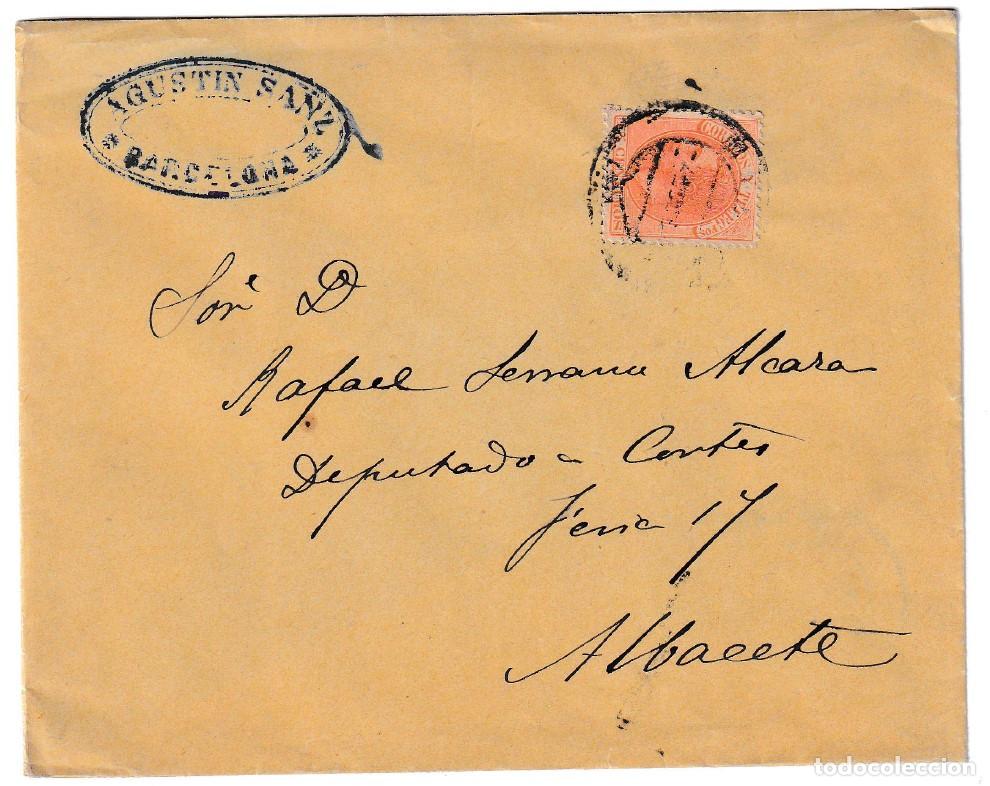 AGUSTIN SANZ
* BARCELONA *
CORREOS Y TELEGFOS
Sor D
Rafael Serrano Alcara
Deputado a Cortes
Feria 17
Albacete
todocoleccion